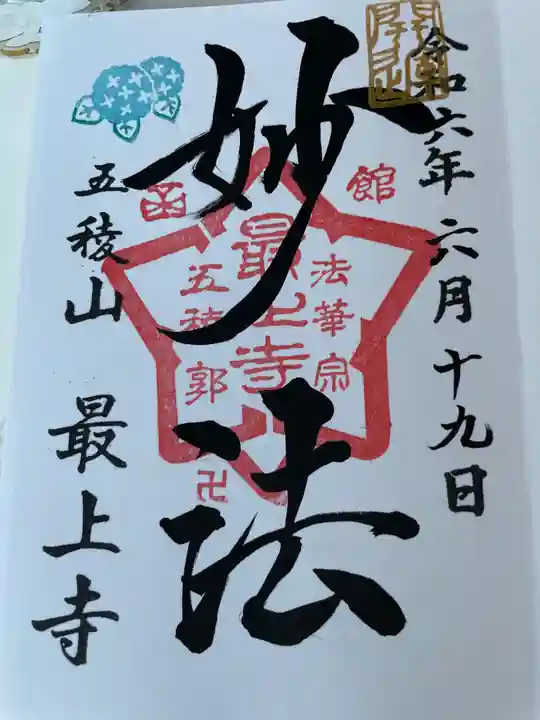 令和六年六月十九日
妙法
函館
法華宗
最上寺
五稜郭
卍
五稜山 最上寺